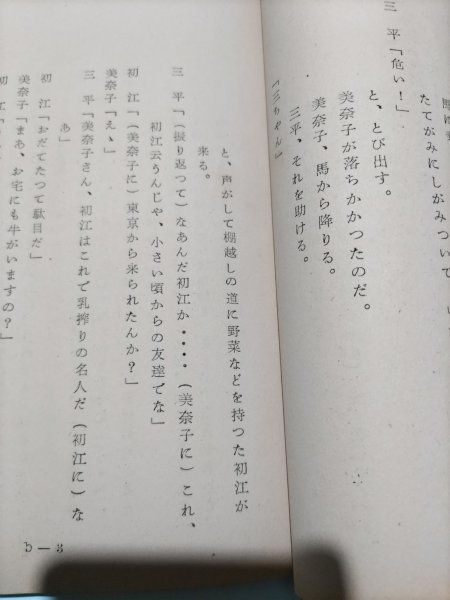 たてがみにしがみついて
三平「危い！」
と、とび出す。
美奈子が落ちかかつたのだ。
美奈子、馬から降りる。
三平、それを助ける。
「三ちゃん」
と、声がして棚越しの道に野菜などを持つた初江が
来る。
三平「（振り返つて）なあんだ初江か・・・・（美奈子に）これ、
初江云うんじゃ、小さい頃からの友達でな」
初江「（美奈子に）東京から来られたんか？」
美奈子「えゝ」
三平「美奈子さん、初江はこれで乳搾りの名人だ（初江に）な
あ」
初江「おだてたつて駄目だ」
美奈子「まあ、お宅にも牛がいますの？」
初江「
b－3